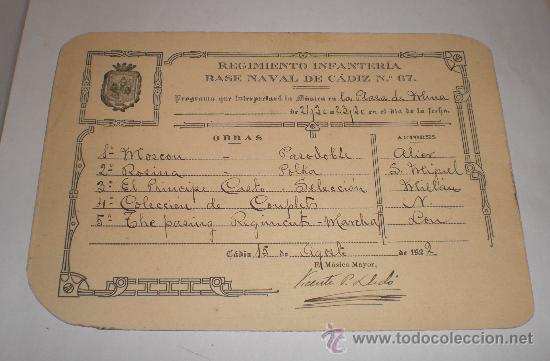 REGIMIENTO INFANTERÍA
BASE NAVAL DE CÁDIZ N.º 67.
Programa que interpretará la Música en la Plaza de Mina
de 21½ a 23½ en el día de la fecha.
OBRAS AUTORES
1ª Moscou - Pasodoble Alier
2ª Rosina - Polka S. Miguel
3ª El Principe Casto - Selección Millán
4ª Colección de Couplets N.
5ª The pasing Regiment - Marcha
Cádiz 15 de Agosto de 1922
El Músico Mayor,
Vicente P. Lledó
todocoleccion.net